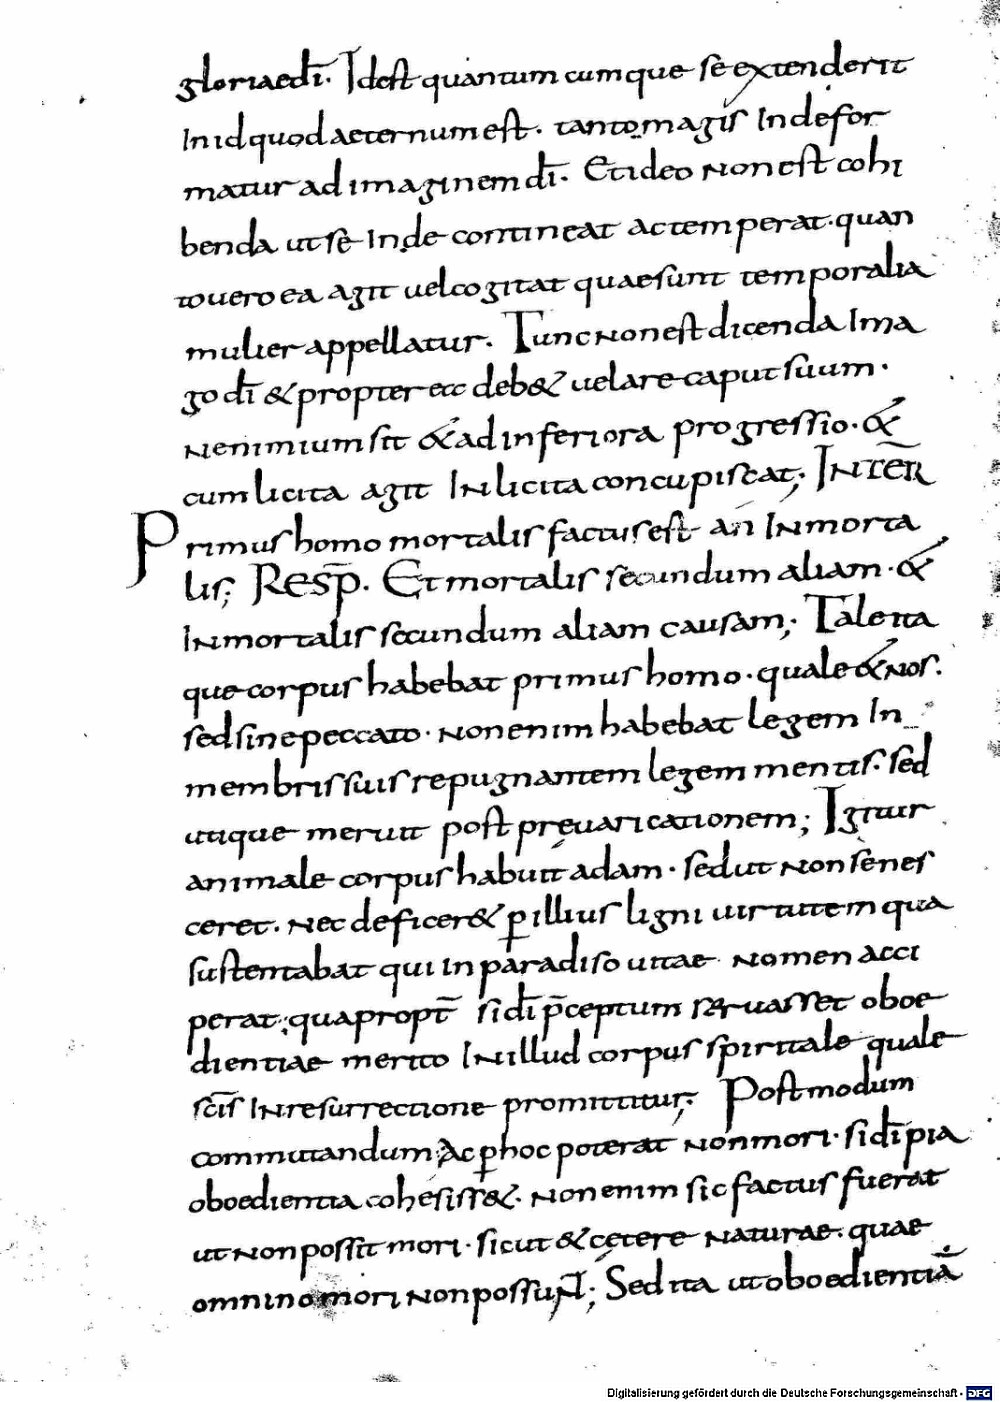 gloriae dī. Idest quantum cumque se extenderit
In id quod aeternum est. tanto magis Inde for
matur ad imaginem dī. Et ideo non est cohi
benda ut se Inde contineat ac temperat. quan
to uero ea agit uel cogitat quae sunt temporalia
mulier appellatur. Tunc non est dicenda Ima
go dī & propterea deb& uelare caput suum.
Ne nimium sit & ad inferiora progressio. &
cum licita agit Inlicita concupiscat; INTER̄
Primus homo mortalis factus est an Inmorta
lis; Resp̄. Et mortalis secundum aliam. &
Inmortalis secundum aliam causam; Tale ita
que corpus habebat primus homo. quale & nos.
sed sine peccato. non enim habebat legem In
membris suis repugnantem legem mentis. sed
utique meruit post pręuaricationem; Igitur
animale corpus habuit adam. sed ut non senes
ceret. Nec deficer& ꝑ illius ligni uirtutem qua
sustentabat qui in paradiso uitae nomen acci
perat; quapropt̄ si dī p̄ceptum seruasset oboe
dientiae merito In illud corpus spiritale quale
sc̄is In resurrectione promittitur; Post modum
commutandum. Ac ꝑ hoc poterat non mori. si dī pia
oboedientia cohesiss&. non enim sic factus fuerat
ut non possit mori. sicut & cętere naturae. quae
omnino mori non possunt; Sed ita ut oboedientiā